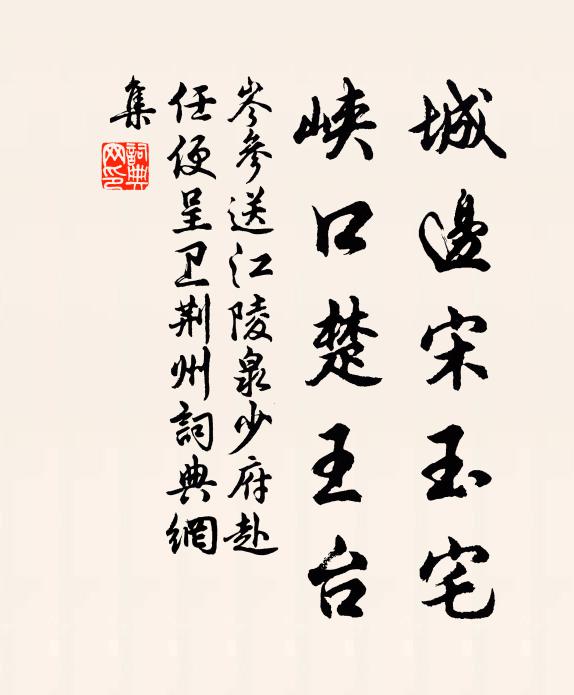 城邊宋玉宅
峽口楚王台
岑參送江陵泉少府赴
任便呈卫荆州詞典網
集
詞典
网印